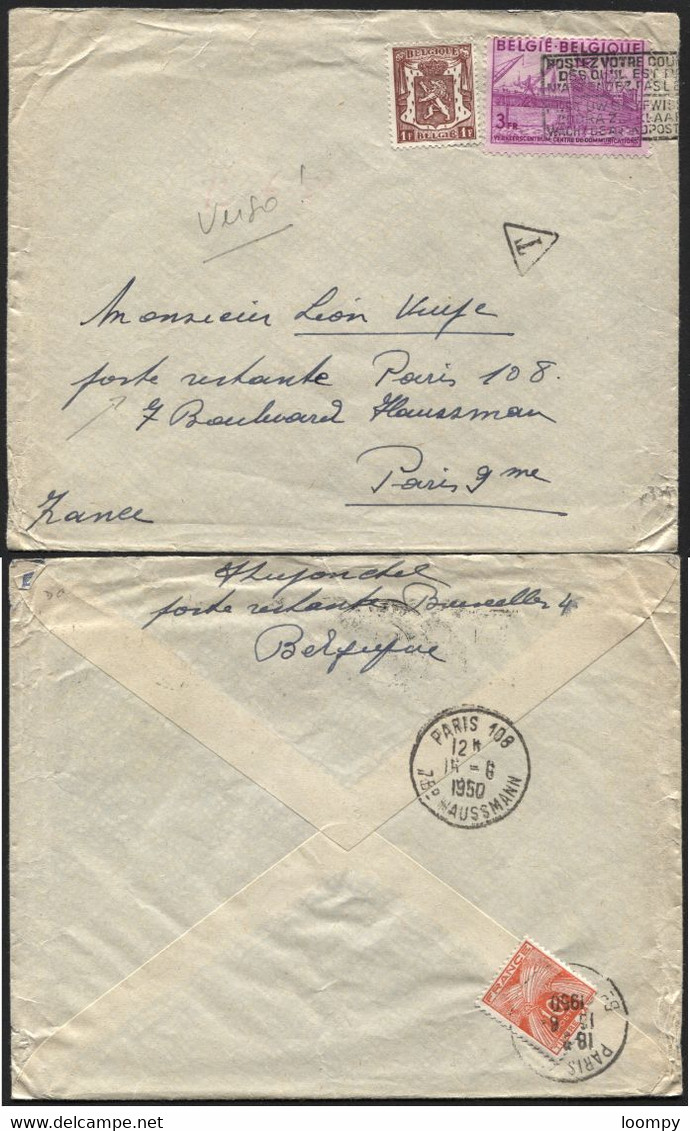 BELGIQUE
1F 1F
BELGIË
BELGIE-BELGIQUE
3FR
VERKEERSCENTRUM CENTRE DE COMMUNICATIONS
POSTEZ VOTRE COU
DÈS QU'IL EST
PAS
Verso !
T
Monsieur Léon
poste restante Paris 108.
7 Boulevard Haussman
Paris 9me
France
poste restante Bruxelles 4
Belgique
PARIS 108
12H
-6
1950
7 BD HAUSSMANN
FRANCE
10
PARIS
18
6
1950
loompy